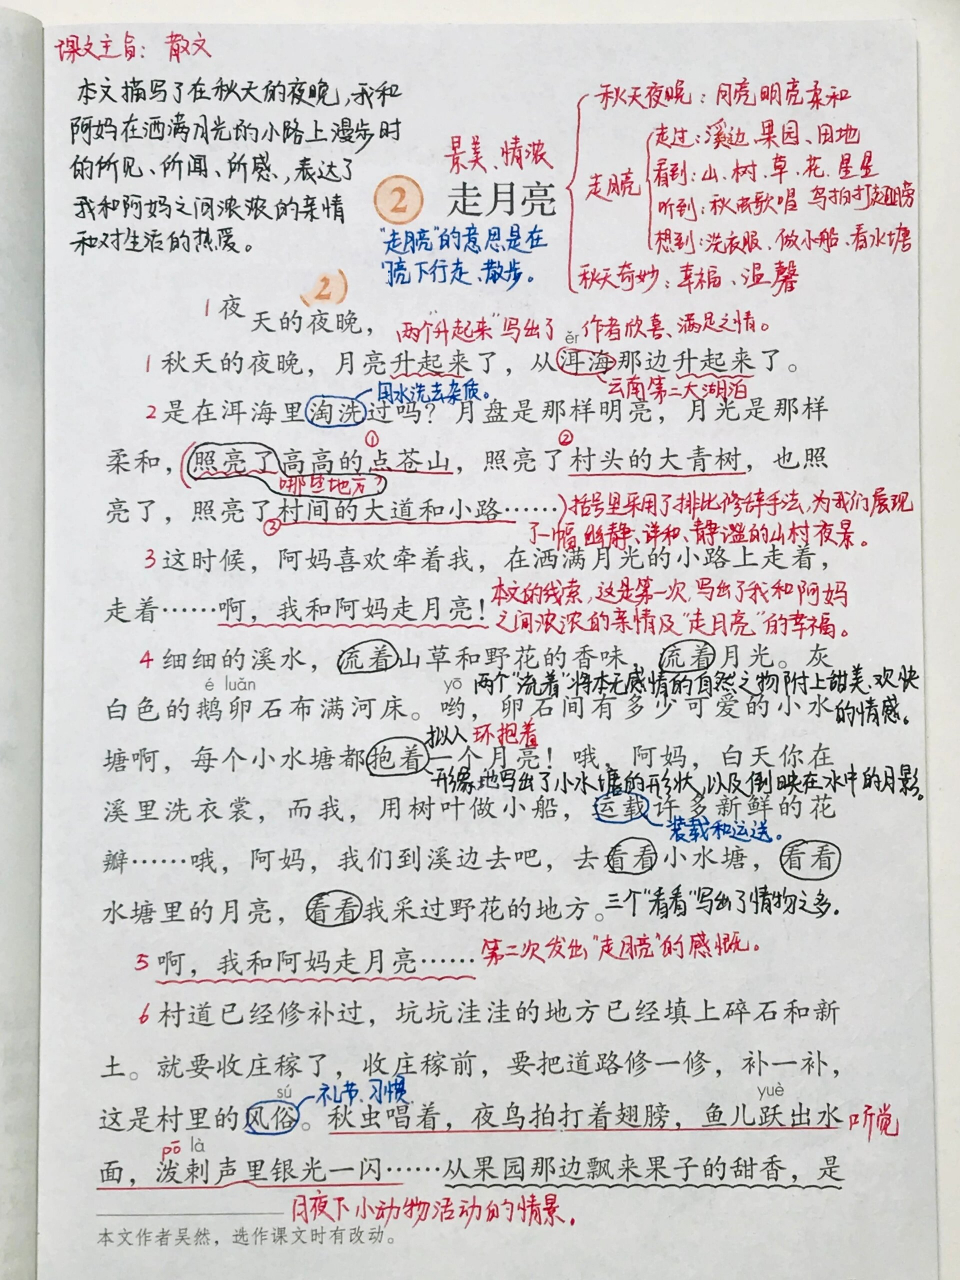 课文主旨：散文
本文描写了在秋天的夜晚,我和
阿妈在洒满月光的小路上漫步时
的所见、所闻、所感,表达了
我和阿妈之间浓浓的亲情
和对生活的热爱。
景美、情浓
2 走月亮
"走月亮"的意思是在
月亮下行走、散步。
秋天夜晚：月亮明亮柔和
走月亮
走过：溪边、果园、田地
看到：山、树、草、花、星星
听到：秋虫歌唱 鸟拍打翅膀
想到：洗衣服、做小船、看水塘
秋天奇妙：幸福、温馨
2
1夜
天的夜晚，
两个"升起来"写出了作者欣喜、满足之情。
ěr
1 秋天的夜晚，月亮升起来了，从洱海那边升起来了。
用水洗去杂质。
云南第二大湖泊
2 是在洱海里淘洗过吗？月盘是那样明亮，月光是那样
① ②
柔和，(照亮了高高的点苍山，照亮了村头的大青树，也照
哪些地方?
亮了，照亮了村间的大道和小路……)括号里采用了排比修辞手法,为我们展现
②
了一幅幽静、详和、静谧的山村夜景。
3 这时候，阿妈喜欢牵着我，在洒满月光的小路上走着，
走着……啊，我和阿妈走月亮！
本文的线索,这是第一次,写出了我和阿妈
之间浓浓的亲情及"走月亮"的幸福。
4 细细的溪水，流着山草和野花的香味，流着月光。灰
é luǎn yō
两个"流着"将本无感情的自然之物附上甜美、欢快
的情感。
白色的鹅卵石布满河床。哟，卵石间有多少可爱的小水
拟人 环抱着
塘啊，每个小水塘都抱着一个月亮！哦，阿妈，白天你在
形象地写出了小水塘的形状,以及倒映在水中的月影。
溪里洗衣裳，而我，用树叶做小船，运载许多新鲜的花
装载和运送。
瓣……哦，阿妈，我们到溪边去吧，去看看小水塘，看看
水塘里的月亮，看看我采过野花的地方。
三个"看看"写出了情物之多.
5 啊，我和阿妈走月亮……
第二次发出"走月亮"的感慨。
6 村道已经修补过，坑坑洼洼的地方已经填上碎石和新
土。就要收庄稼了，收庄稼前，要把道路修一修，补一补，
sú 礼节、习惯. yuè
这是村里的风俗。秋虫唱着，夜鸟拍打着翅膀，鱼儿跃出水
听觉
pō là
面，泼剌声里银光一闪……从果园那边飘来果子的甜香，是
月夜下小动物活动的情景.
本文作者吴然，选作课文时有改动。